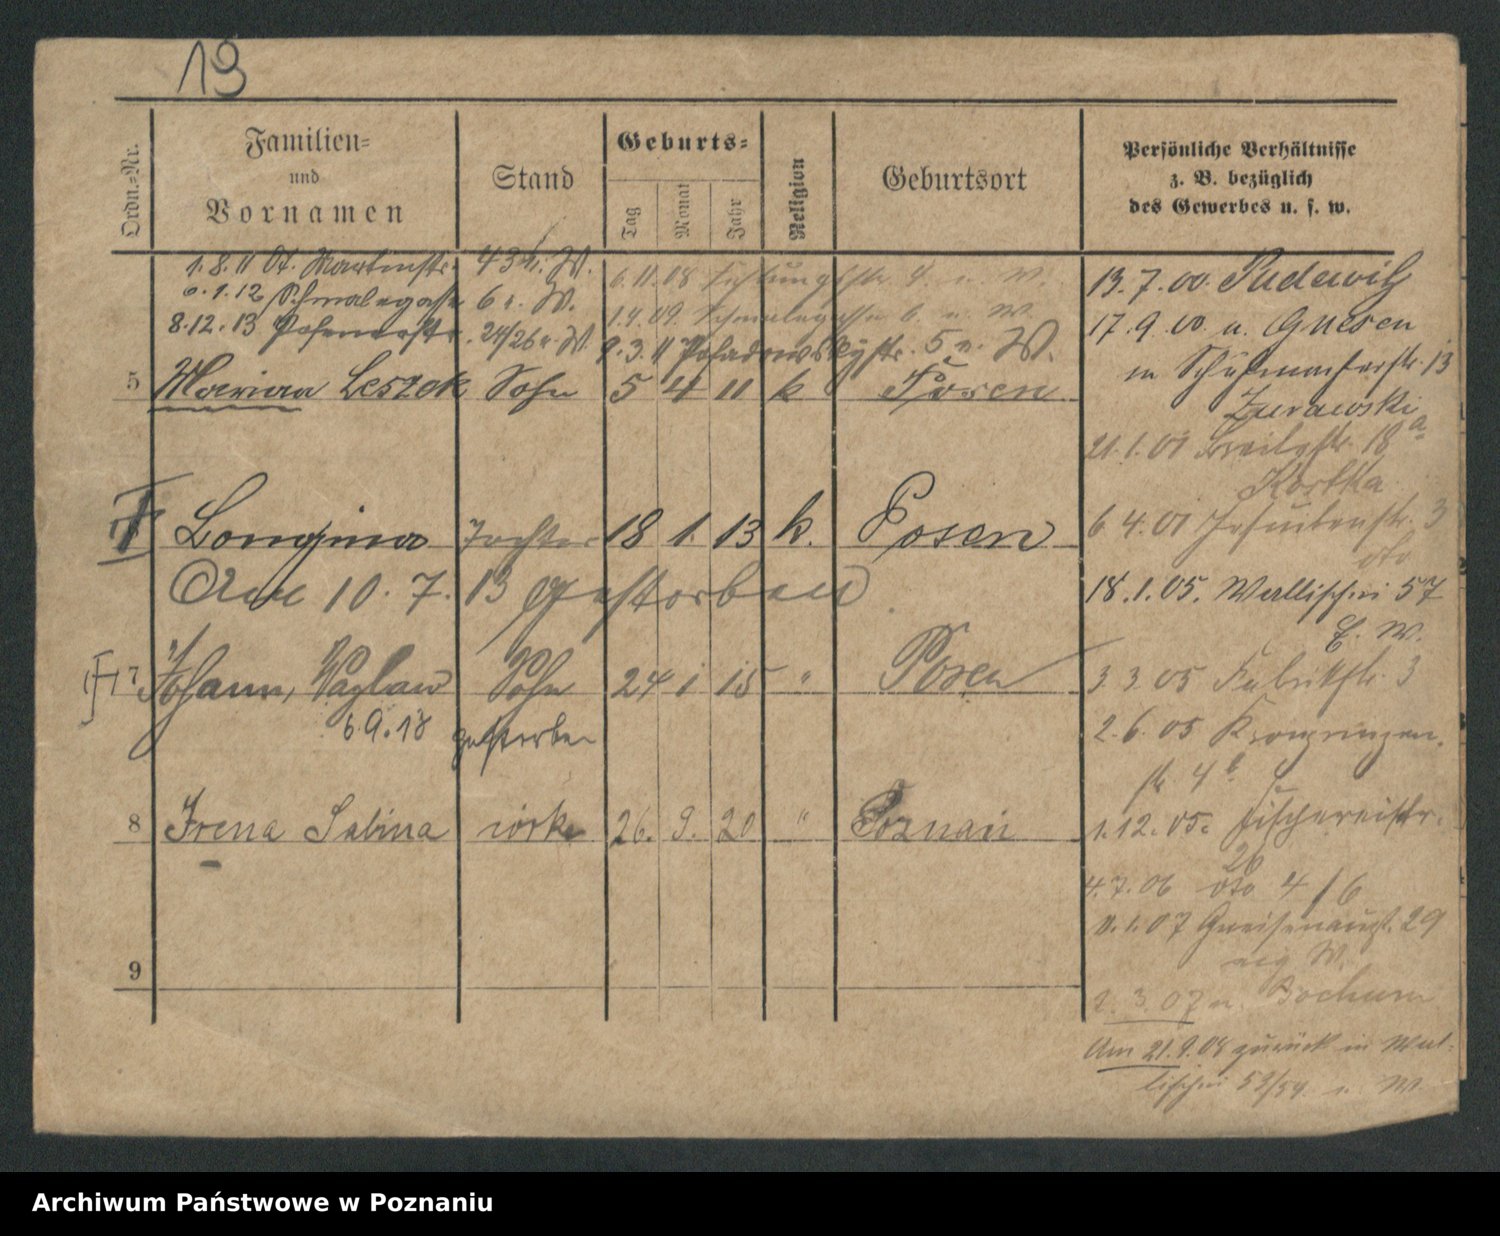 19
Ordn.-Nr.
Familien-
und
Vornamen
Stand
Geburts-
Tag
Monat
Jahr
Religion
Geburtsort
Persönliche Verhältnisse
z. B. bezüglich
des Gewerbes u. s. w.
1.8.11 Ot. Martinstr. 43 W.
6.1.12 Schmalegasse 6 r. W.
8.12.13 Posenerstr. 24/26 r. W.
6.11.08 4. W.
1.4.09. Schmalegasse 6. W.
9.3.11 Posadowskystr. 5 W.
5 Marian Leszek Sohn 5 4 11 k Posen
Longina Tochter 18 1. 13 k. Posen
Am 10. 7. 13 gestorben
7 Johann, Vazlaw Sohn 24 1 15 " Posen
6.9.18 gestorben
8 Irena Sabina córka 26. 9. 20 " Poznań
9
13.7.00. Pudewitz
17.9.00. u. Gnesen
in Schuhmacherstr. 13
Zurawski
21.1.01 Breitestr. 18 a
Kortka
6.4.01 Jesuitenstr. 3
oto
18.1.05. Wallischei 57
E. W.
3 3.05 Fabrikstr. 3
2.6.05 Kronprinzen-
str. 4 b
1.12.05. Fischereistr.
26
4.7.06 oto 4/6
11.1.07 Gneisenaust. 29
W.
2.3.07 n. Bochum
Am 21.9.08 zurück in Wal-
lischei 53/54. W.
Archiwum Państwowe w Poznaniu